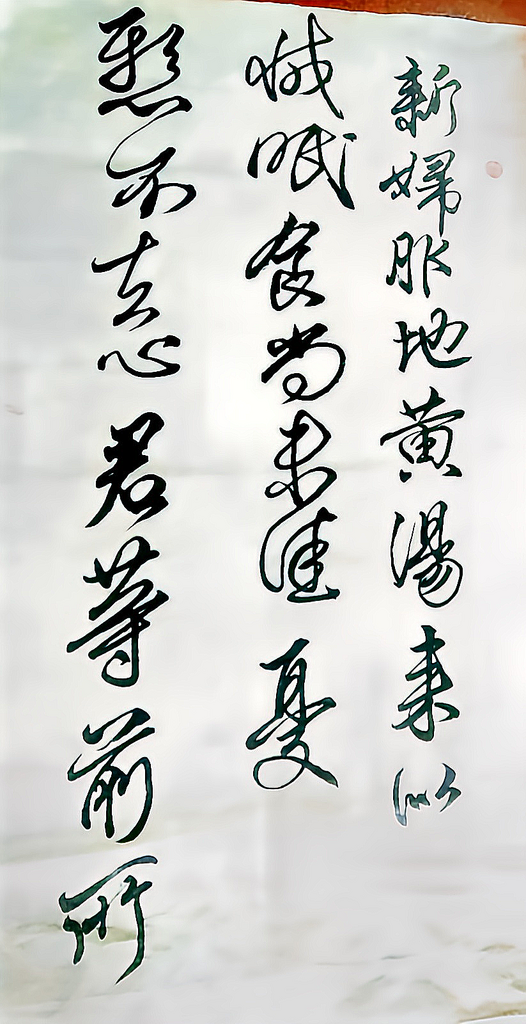 新婦服地黄湯来似
減眠食尚未佳憂
懸不去心君等前所